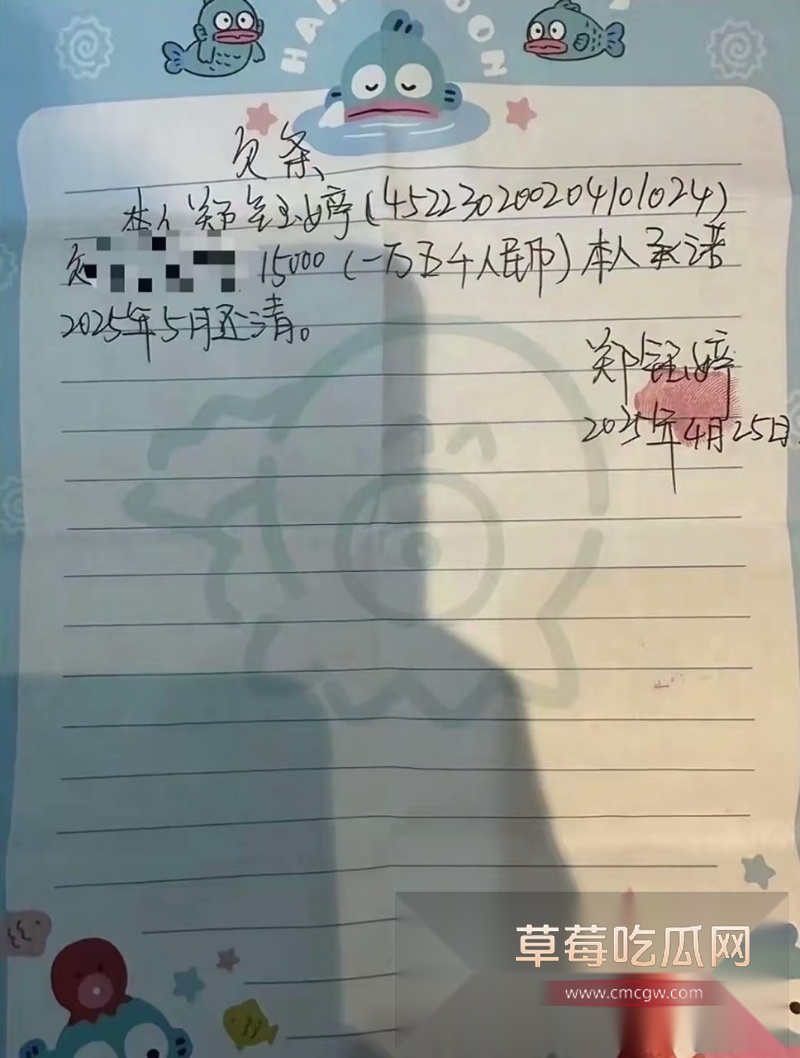 欠条
本人郑钰婷(452230200204101024)
欠 15000(一万五千人民币)本人承诺
2025年5月还清。
郑钰婷
2025年4月25日
草莓吃瓜网
www.cmcgw.com